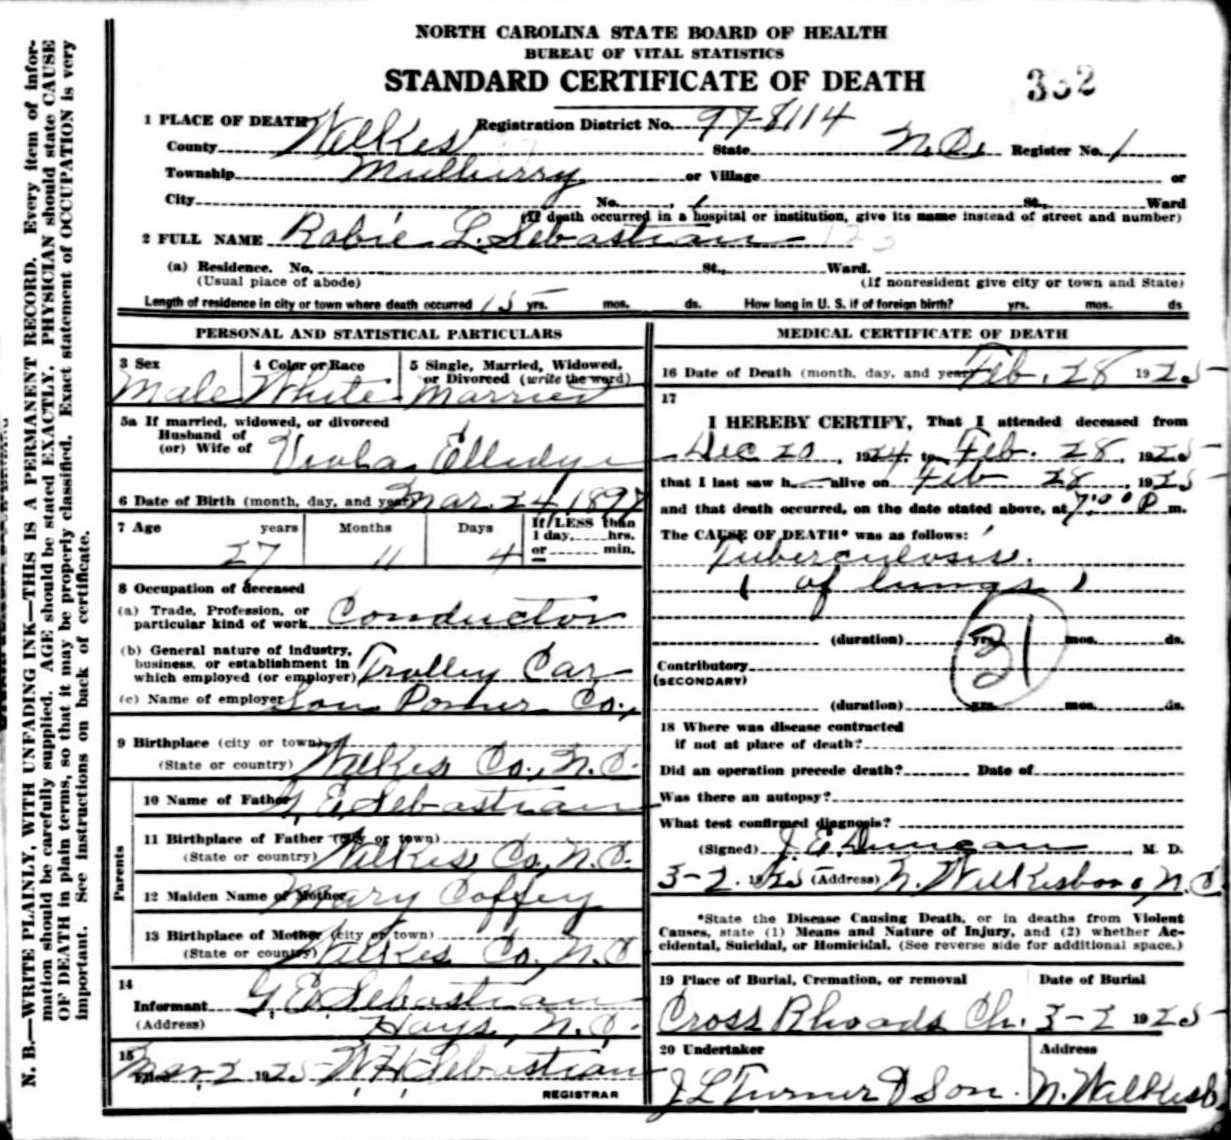 NORTH CAROLINA STATE BOARD OF HEALTH
BUREAU OF VITAL STATISTICS
STANDARD CERTIFICATE OF DEATH
332
1 PLACE OF DEATH Registration District No. 97-8114
County Wilkes State N.C. Register No. 1
Township Mulberry or Village or
City No. , St., Ward
(If death occurred in a hospital or institution, give its name instead of street and number)
2 FULL NAME Robie L. Sebastian
(a) Residence. No. St., Ward.
(Usual place of abode) (If nonresident give city or town and State)
Length of residence in city or town where death occurred 15 yrs. mos. ds. How long in U. S. if of foreign birth? yrs. mos. ds
PERSONAL AND STATISTICAL PARTICULARS
3 Sex 4 Color or Race 5 Single, Married, Widowed,
or Divorced (write the word)
Male White Married
5a If married, widowed, or divorced
Husband of
(or) Wife of Viola Elledge
6 Date of Birth (month, day, and year) Mar. 24, 1897
7 Age years Months Days If LESS than
1 day, hrs.
or min.
27 11 4
8 Occupation of deceased
(a) Trade, Profession, or
particular kind of work Conductor
(b) General nature of industry,
business, or establishment in
which employed (or employer) Trolley Car
(c) Name of employer Sou. Power Co.,
9 Birthplace (city or town)
(State or country) Wilkes Co., N.C.
Parents
10 Name of Father G. E. Sebastian
11 Birthplace of Father (city or town)
(State or country) Wilkes Co, N.C.
12 Maiden Name of Mother Mary Coffey
13 Birthplace of Mother (city or town)
(State or country) Wilkes Co, N.C
14
Informant G. E. Sebastian
(Address) Hays, N.C.
15
Filed Mar. 2 1925 W. H. Sebastian
REGISTRAR
MEDICAL CERTIFICATE OF DEATH
16 Date of Death (month, day, and year) Feb. 28 1925
17
I HEREBY CERTIFY, That I attended deceased from
Dec 20, 1924, to Feb. 28, 1925
that I last saw h alive on Feb 28, 1925
and that death occurred, on the date stated above, at 7:00 P m.
The CAUSE OF DEATH* was as follows:
Tuberculosis.
( of lungs )
31
(duration) yrs. mos. ds.
Contributory
(SECONDARY)
(duration) yrs. mos. ds.
18 Where was disease contracted
if not at place of death?
Did an operation precede death? Date of
Was there an autopsy?
What test confirmed diagnosis?
(Signed) J. E. Duncan, M. D.
3-2. 1925 (Address) N. Wilkesboro, N.C
*State the Disease Causing Death, or in deaths from Violent
Causes, state (1) Means and Nature of Injury, and (2) whether Ac-
cidental, Suicidal, or Homicidal. (See reverse side for additional space.)
19 Place of Burial, Cremation, or removal Date of Burial
Cross Rhoads Ch. 3-2 1925
20 Undertaker Address
J L Turner & Son. N. Wilkesb
N. B.—WRITE PLAINLY, WITH UNFADING INK—THIS IS A PERMANENT RECORD. Every item of infor-
mation should be carefully supplied. AGE should be stated EXACTLY. PHYSICIAN should state CAUSE
OF DEATH in plain terms, so that it may be properly classified. Exact statement of OCCUPATION is very
important. See instructions on back of certificate.